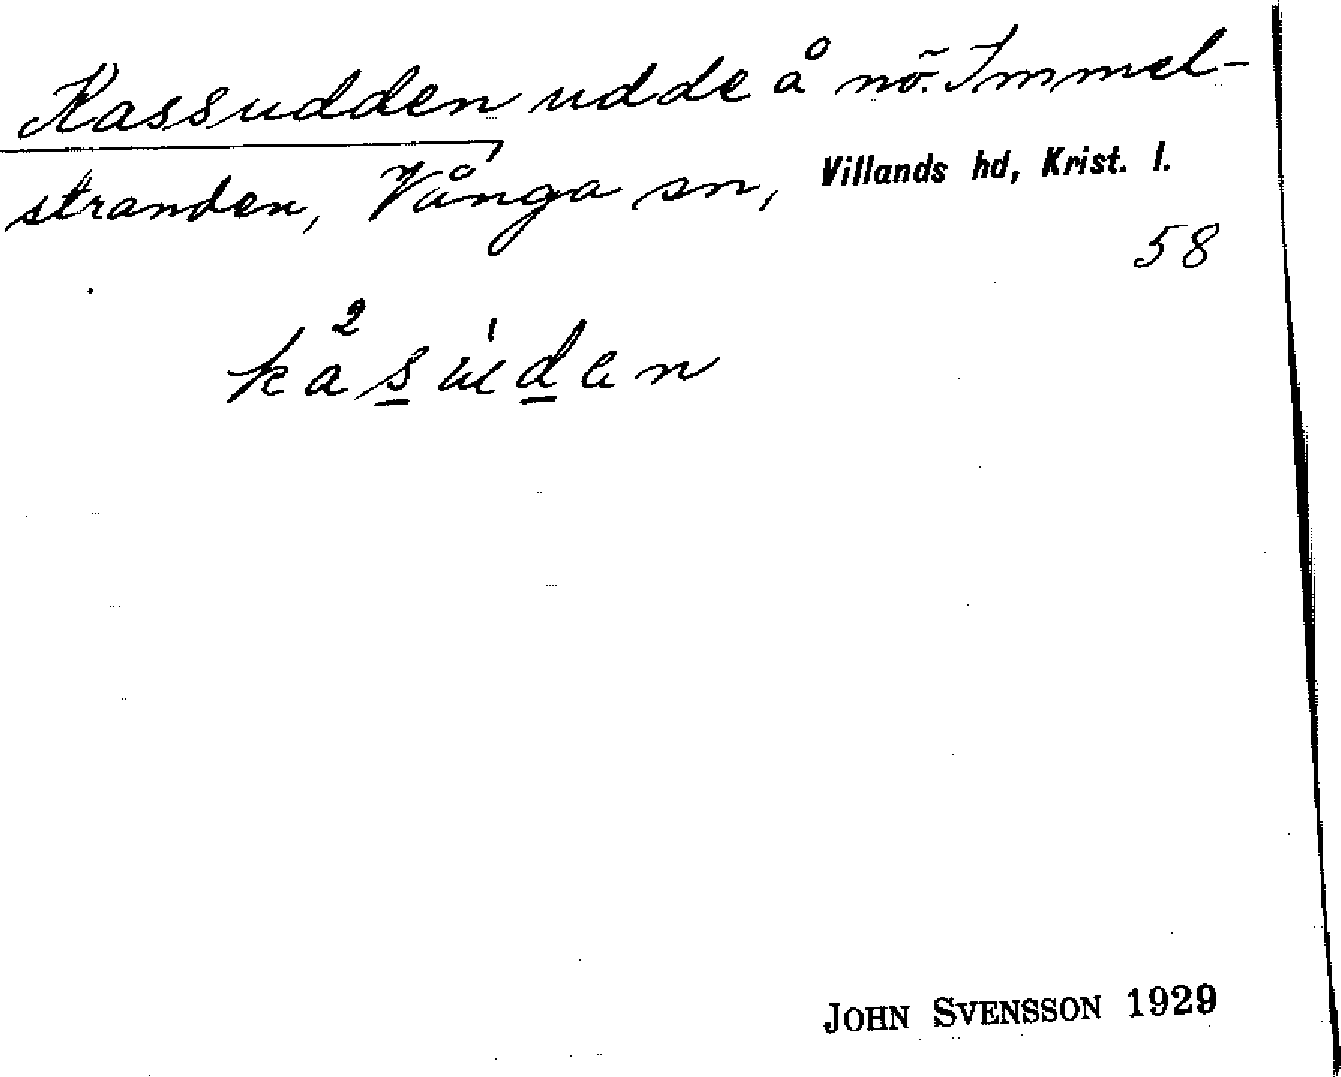 Kassudden, udde å nö. Immel-
stranden, Vånga sn, Villands hd, Krist. l.
58
JOHN SVENSSON 1929